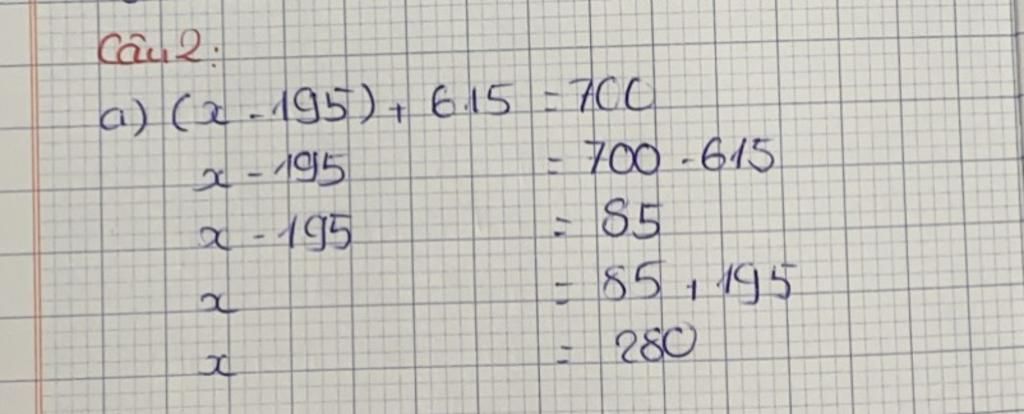 Câu 2:
a) (x - 195) + 615 = 700
x - 195 = 700 - 615
x - 195 = 85
x = 85 + 195
x = 280